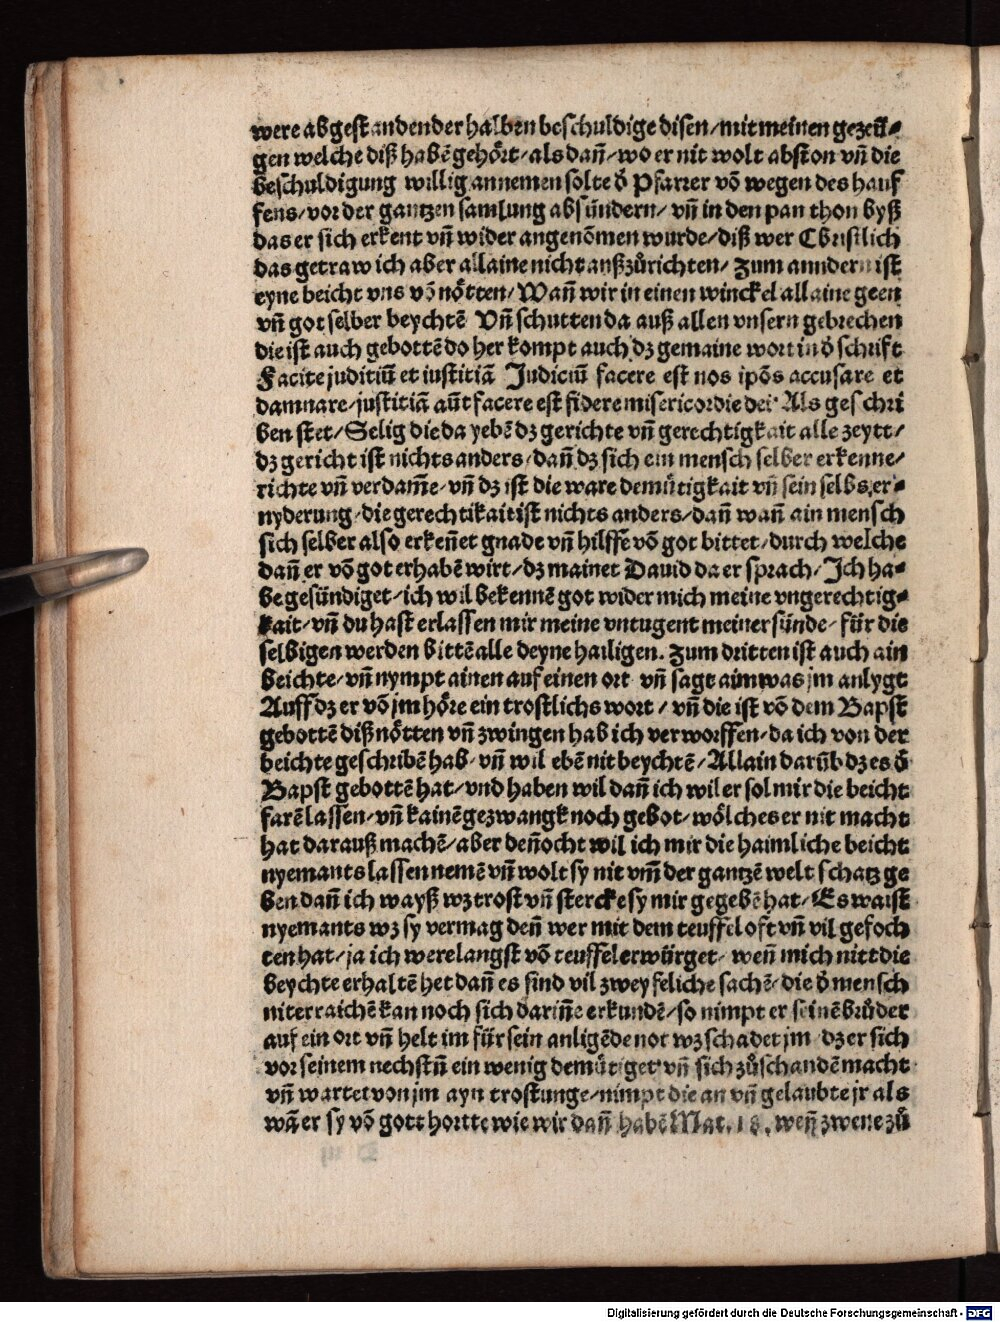 were abgestanden der halben beschuldige disen/mit meinen gezeü⸗
gen welche diß habē gehört/als dañ/wo er nit wolt abston vñ die
beschuldigung willig annemen solte d̕ Pfarrer vō wegen des hauf
fens/vor der gantzen samlung absündern/ vñ in den pan thon byß
das er sich erkent vñ wider angenōmen wurde/diß wer Christlich
das getraw ich aber allaine nicht außzůrichten/ Zum anndern ist
eyne beicht vns vō nötten/Wañ wir in einen winckel allaine geen
vñ got selber beychtē Vñ schutten da auß allen vnsern gebrechen
die ist auch gebottē do her kompt auch dz gemaine wort in d̕ schrift
Facite juditiū et iustitiā Judiciū facere est nos ipōs accusare et
damnare/justitiā aūt facere est fidere misericordie dei Als geschri
ben stet/Selig die da yebē dz gerichte vñ gerechtigkait alle zeytt/
dz gericht ist nichts anders/dañ dz sich ein mensch selber erkenne/
richte vñ verdam̄e/vñ dz ist die ware demütigkait vñ sein selbs er⸗
nyderung/die gerechtikait ist nichts anders/dañ wañ ain mensch
sich selber also erkeñet gnade vñ hilffe vō got bittet/durch welche
dañ er vō got erhabē wirt/dz mainet Dauid da er sprach/Ich ha⸗
be gesündiget/ich wil bekennē got wider mich meine vngerechtig⸗
kait/vñ du hast erlassen mir meine vntugent meiner sünde/für die
selbigen werden bittē alle deyne hailigen. Zum dritten ist auch ain
beichte/vñ nympt ainen auf einen ort vñ sagt aim was jm anlygt
Auff dz er vō jm höre ein trostlichs wort/vñ die ist vō dem Bapst
gebottē diß nötten vñ zwingen hab ich verworffen/da ich von der
beichte geschribē hab/vñ wil ebē nit beychtē/Allain darūb dz es d̕
Bapst gebottē hat/vnd haben wil dañ ich wil er sol mir die beicht
farē lassen/vñ kainē gezwangk noch gebot/wölches er nit macht
hat darauß machē/aber deñocht wil ich mir die haimliche beicht
nyemants lassen nemē vñ wolt sy nit vm̄ der gantzē welt schatz ge
ben dañ ich wayß wz trost vñ stercke sy mir gegebē hat/Es waist
nyemants wz sy vermag deñ wer mit dem teuffel oft vñ vil gefoch
ten hat/ja ich were langst vō teuffel erwürget/ weñ mich nitt die
beychte erhaltē het dañ es sind vil zweyfeliche sachē/die d̕ mensch
nit erraichē kan noch sich dariñe erkundē/so nimpt er seinē brůder
auf ein ort vñ helt im für sein anligēde not wz schadet jm dz er sich
vor seinem nechstñ ein wenig demütiget vñ sich zůschandē macht
vñ wartet von jm ayn trostunge/nimpt die an vñ gelaubte jr als
wā er sy vō gott hortte wie wir dañ habē Mat. 18. weñ zwene zů
Digitalisierung gefördert durch die Deutsche Forschungsgemeinschaft - DFG